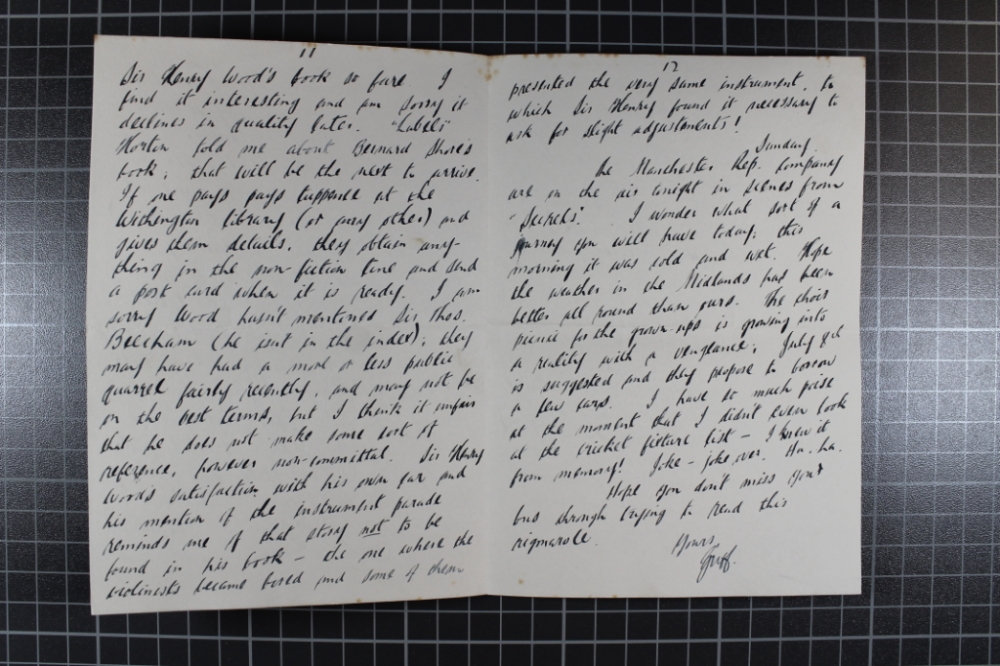 11
Sir Henry Wood's book so fare I
find it interesting and am sorry it
declines in quality later. "Labels"
Horton told me about Bernard Shore's
book; that will be the next to arrive.
If one pays pays tuppence at the
Withington library (or any other) and
gives them details, they obtain any-
thing in the non-fiction line and send
a post card when it is ready. I am
sorry Wood hasn't mentioned Sir Thos.
Beecham (he isn't in the index); they
may have had a more or less public
quarrel fairly recently, and may not be
on the best terms, but I think it unfair
that he does not make some sort of
reference, however non-committal. Sir Henry
Wood's satisfaction with his own ear and
his mention of the instrument parade
reminds me of that story not to be
found in his book – the one where the
violinists became bored and some of them
12
presented the very same instrument, to
which Sir Henry found it necessary to
ask for slight adjustments!
Sunday.
The Manchester Rep. Company
are on the air tonight in scenes from
"Secrets". I wonder what sort of a
journey you will have today; this
morning it was cold and wet. Hope
the weather in the Midlands has been
better all round than ours. The choir
picnic for the grown-ups is growing into
a reality with a vengeance; July 9th
is suggested and they propose to borrow
a few cars. I have so much poise
at the moment that I didn't even look
at the cricket fixture list – I knew it
from memory! Joke – joke over. Ha. ha.
Hope you don't miss your
bus through trying to read this
rigmarole.
Yours,
Griff.